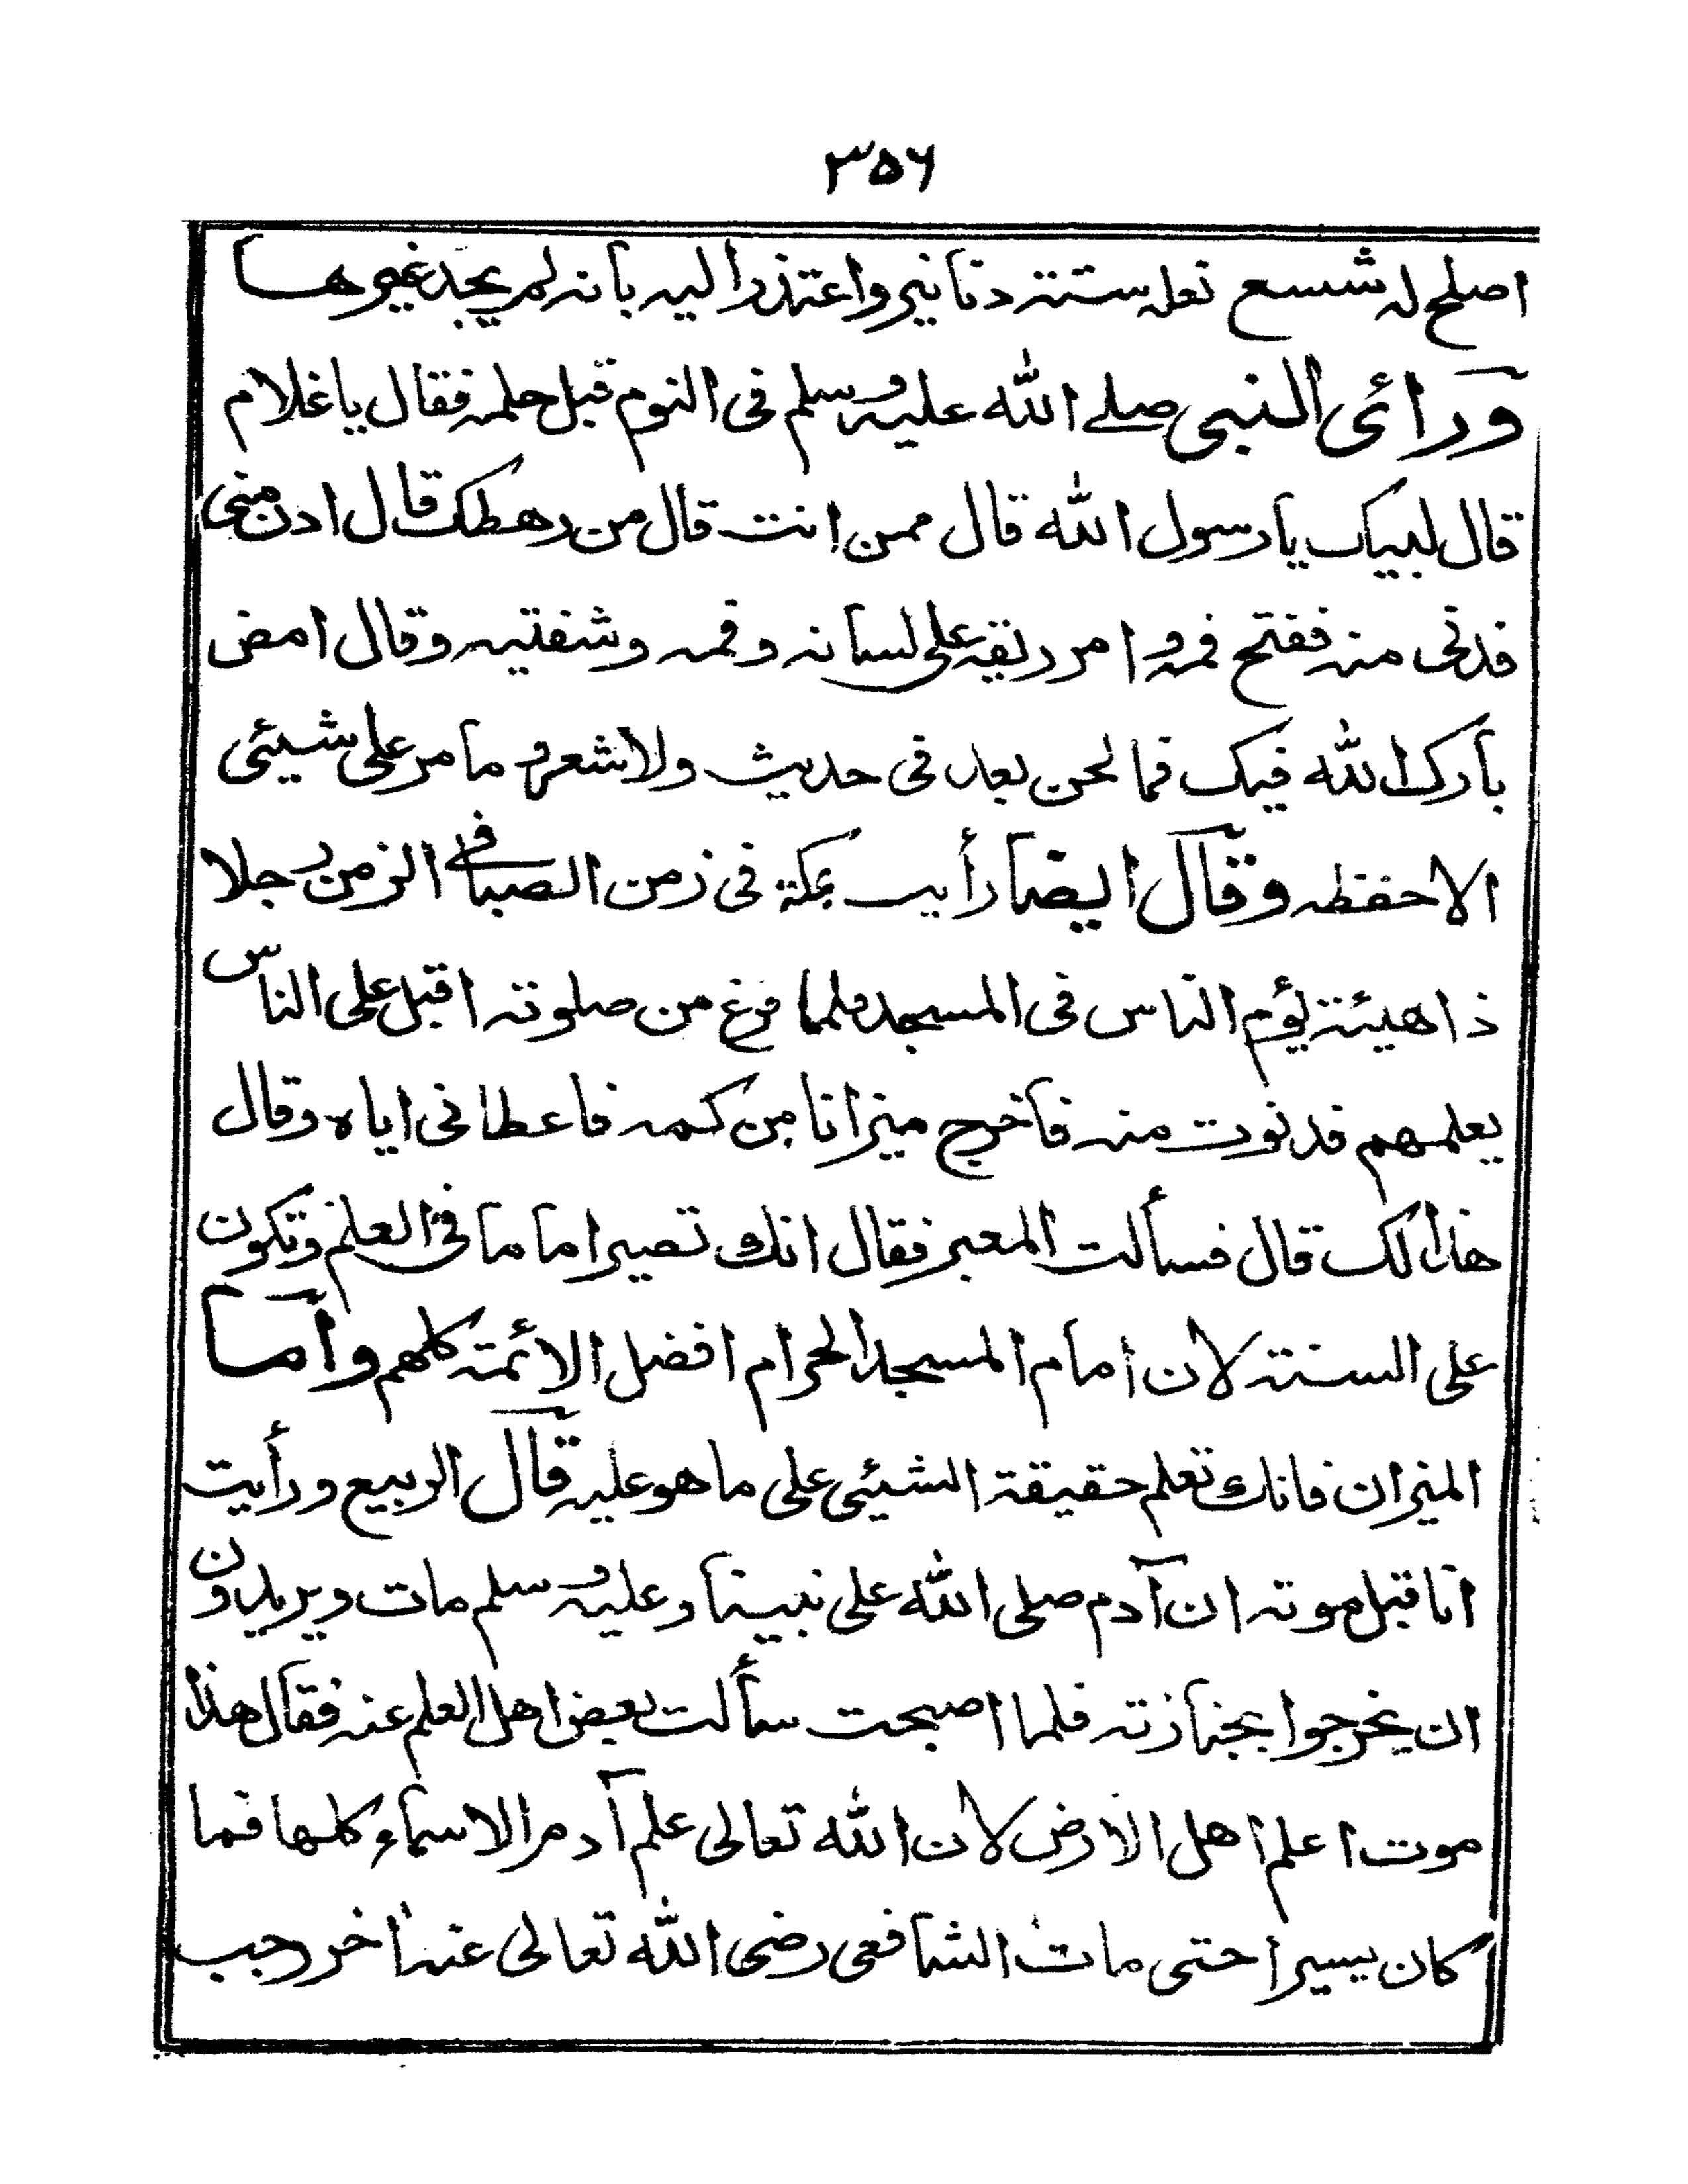 ٣٥٦
اصلح له شسع نعله ستة دنانير واعتذر اليه بأنه لم يجد غيرها
ورائى النبى صلے الله عليه وسلم فى النوم قبل حلمه فقال يا غلام
قال لبيك يا رسول الله قال ممن انت قال من رهطك قال ادن منى
فدنى منه ففتح فمه وامر ريقه على لسانه وفمه وشفتيه وقال امض
بارك الله فيك فما لحن بعد فى حديث ولا شعر وما مر على شيئى
الا حفظه وقال ايضا رأيت بمكة فى زمن الصبا فى الزمن رجلا
ذا هيئة يؤم الناس فى المسجد فلما فرغ من صلوته اقبل على الناس
يعلمهم فدنوت منه فأخرج ميزانا من كمه فاعطانى اياه وقال
هذا لك قال فسألت المعبر فقال انك تصير اماما فى العلم وتكون
على السنة لان امام المسجد الحرام افضل الائمة كلهم واما
الميزان فانك تعلم حقيقة الشيئى على ما هو عليه قال الربيع ورأيت
انا قبل موته ان آدم صلى الله على نبينا وعليه وسلم مات ويريدون
ان يخرجوا بجنازته فلما اصبحت سألت بعض اهل العلم عنه فقال هذا
موت اعلم اهل الارض لان الله تعالى علم آدم الاسماء كلها فما
كان يسيرا حتى مات الشافعى رضى الله تعالى عنه اخر رجب